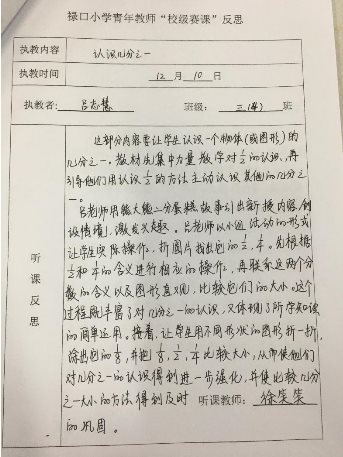 禄口小学青年教师“校级赛课”反思
执教内容 认识几分之一
执教时间 12 月 10 日
执教者: 吕志慧 班级: 三(4) 班
听课反思
这部分内容要让学生认识一个物体(或图形)的
几分之一。教材先集中力量教学对1/2的认识,再
引导他们用认识1/2的方法主动认识其他的几分之
一。
吕老师用熊大熊二分蛋糕故事引出新授内容,创
设情境,激发其兴趣。吕老师以小组活动的形式
让学生实际操作,折图片找出它的1/2,1/4。先根据
1/2和1/4的含义进行相应的操作,再联系这两个分
数的含义以及图形直观,比较它们的大小。这个
过程既丰富了对几分之一的认识,又体现了所学知识
的简单运用。接着,让学生用不同形状的图形折一折,
涂出它的1/8,并把1/8,1/2,1/4比较大小,从而使他们
对几分之一的认识得到进一步强化,并使比较几分
之一大小的方法得到及时 听课教师: 徐笑笑
的巩固。